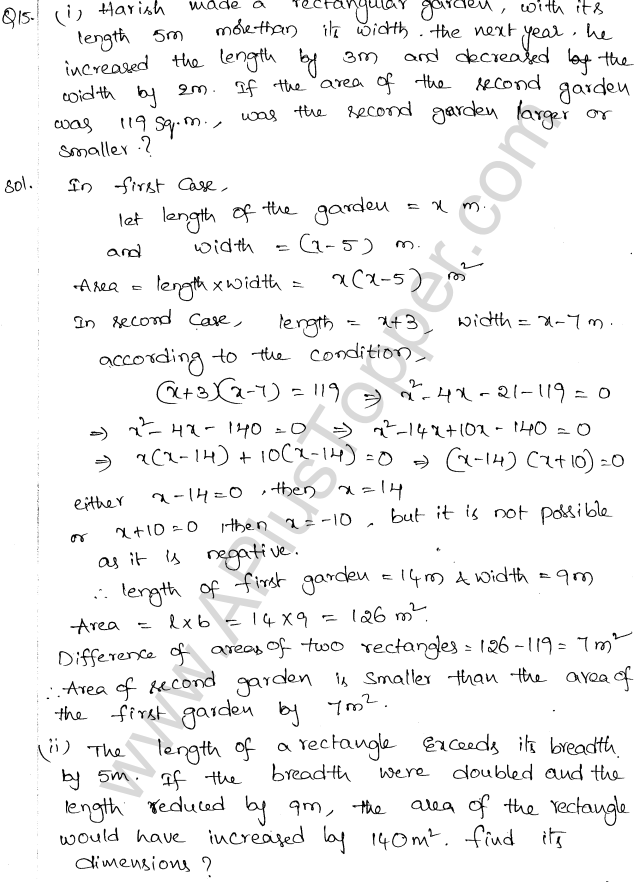 Q15. (i) Harish made a rectangular garden, with its
length 5m more than its width. the next year, he
increased the length by 3m and decreased the
width by 2m. If the area of the second garden
was 119 sq.m., was the second garden larger or
smaller?
Sol. In first case,
let length of the garden = x m.
and width = (x-5) m.
Area = length x width = x(x-5) m²
In second case, length = x+3, width = x-7 m.
according to the condition,
(x+3)(x-7) = 119 ⇒ x²-4x-21-119 = 0
⇒ x²-4x-140=0 ⇒ x²-14x+10x-140=0
⇒ x(x-14)+10(x-14)=0 ⇒ (x-14)(x+10)=0
either x-14=0, then x=14
or x+10=0, then x=-10, but it is not possible
as it is negative.
∴ length of first garden = 14m & width = 9m
Area = l x b = 14 x 9 = 126 m².
Difference of areas of two rectangles = 126-119 = 7m²
∴ Area of second garden is smaller than the area of
the first garden by 7m².
(ii) The length of a rectangle exceeds its breadth
by 5m. If the breadth were doubled and the
length reduced by 9m, the area of the rectangle
would have increased by 140m². find its
dimensions?
www.APlusTopper.com